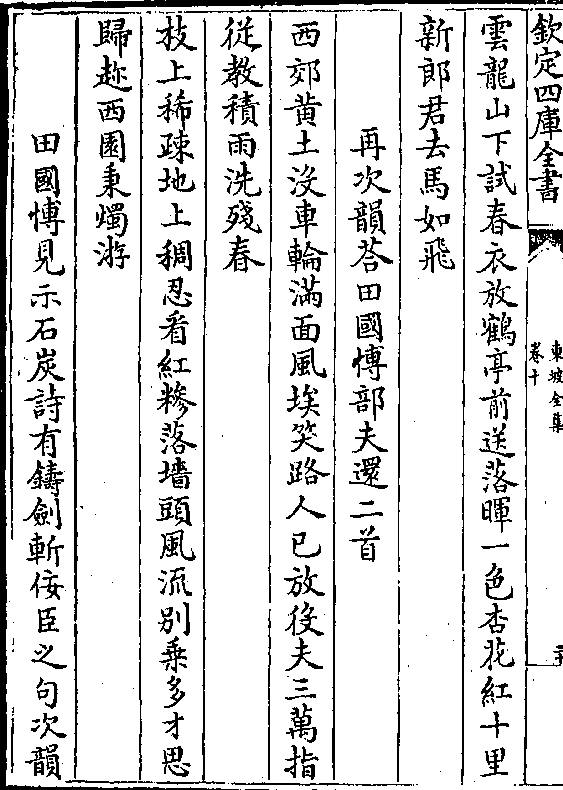 欽定四庫全書
東坡全集
卷十
雲龍山下試春衣放鶴亭前送落暉一色杏花紅十里
新郎君去馬如飛
再次韻荅田國博部夫還二首
西郊黄土沒車輪滿面風埃笑路人已放役夫三萬指
從教積雨洗殘春
枝上稀疎地上稠忍看紅糝落墻頭風流别乗多才思
歸趂西園秉燭游
田國博見示石炭詩有鑄劍斬佞臣之句次韻